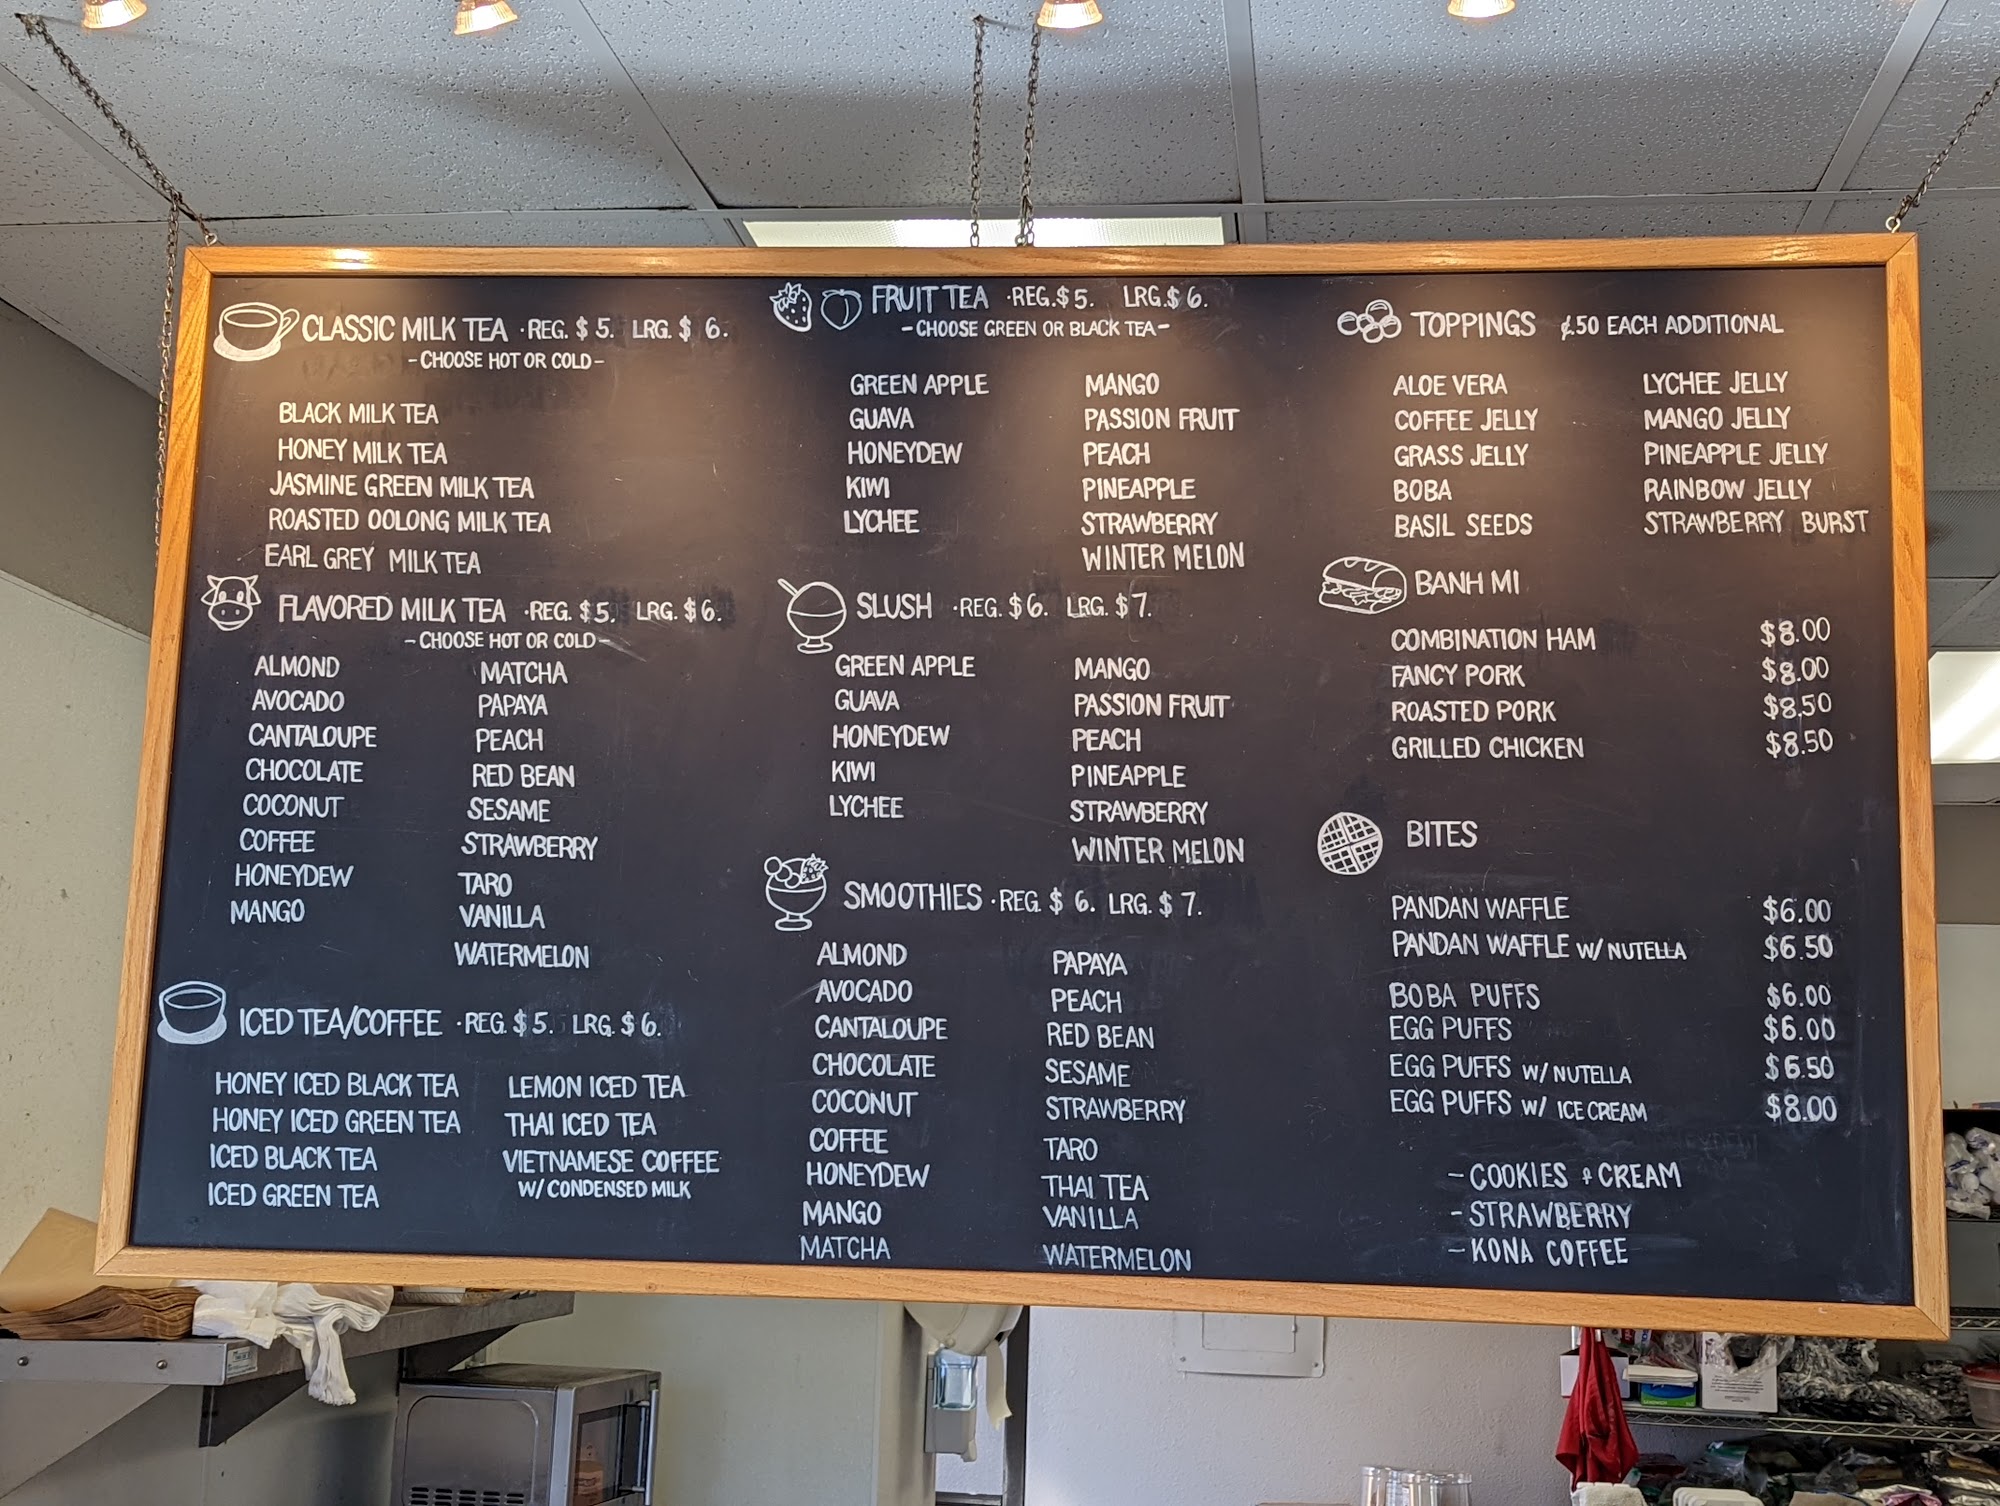 CLASSIC MILK TEA · REG. $5. LRG. $6.
- CHOOSE HOT OR COLD -
BLACK MILK TEA
HONEY MILK TEA
JASMINE GREEN MILK TEA
ROASTED OOLONG MILK TEA
EARL GREY MILK TEA
FLAVORED MILK TEA · REG. $5. LRG. $6.
- CHOOSE HOT OR COLD -
ALMOND
AVOCADO
CANTALOUPE
CHOCOLATE
COCONUT
COFFEE
HONEYDEW
MANGO
MATCHA
PAPAYA
PEACH
RED BEAN
SESAME
STRAWBERRY
TARO
VANILLA
WATERMELON
ICED TEA/COFFEE · REG. $5. LRG. $6.
HONEY ICED BLACK TEA
HONEY ICED GREEN TEA
ICED BLACK TEA
ICED GREEN TEA
LEMON ICED TEA
THAI ICED TEA
VIETNAMESE COFFEE
W/ CONDENSED MILK
FRUIT TEA · REG. $5. LRG. $6.
- CHOOSE GREEN OR BLACK TEA -
GREEN APPLE
GUAVA
HONEYDEW
KIWI
LYCHEE
MANGO
PASSION FRUIT
PEACH
PINEAPPLE
STRAWBERRY
WINTER MELON
SLUSH · REG. $6. LRG. $7.
GREEN APPLE
GUAVA
HONEYDEW
KIWI
LYCHEE
MANGO
PASSION FRUIT
PEACH
PINEAPPLE
STRAWBERRY
WINTER MELON
SMOOTHIES · REG. $6. LRG. $7.
ALMOND
AVOCADO
CANTALOUPE
CHOCOLATE
COCONUT
COFFEE
HONEYDEW
MANGO
MATCHA
PAPAYA
PEACH
RED BEAN
SESAME
STRAWBERRY
TARO
THAI TEA
VANILLA
WATERMELON
TOPPINGS ¢.50 EACH ADDITIONAL
ALOE VERA
COFFEE JELLY
GRASS JELLY
BOBA
BASIL SEEDS
LYCHEE JELLY
MANGO JELLY
PINEAPPLE JELLY
RAINBOW JELLY
STRAWBERRY BURST
BANH MI
COMBINATION HAM $8.00
FANCY PORK $8.00
ROASTED PORK $8.50
GRILLED CHICKEN $8.50
BITES
PANDAN WAFFLE $6.00
PANDAN WAFFLE W/ NUTELLA $6.50
BOBA PUFFS $6.00
EGG PUFFS $6.00
EGG PUFFS W/ NUTELLA $6.50
EGG PUFFS W/ ICE CREAM $8.00
- COOKIES & CREAM
- STRAWBERRY
- KONA COFFEE